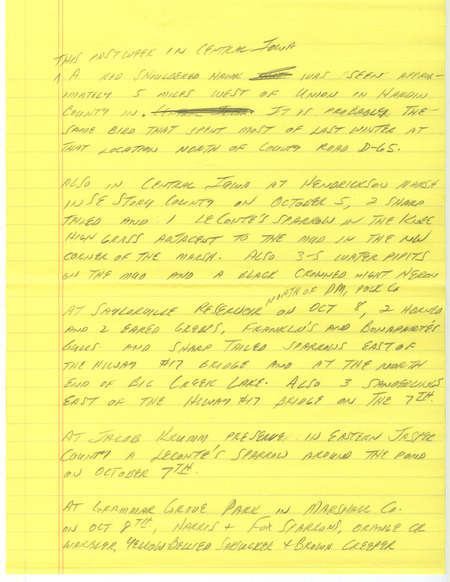 THIS PAST WEEK IN CENTRAL IOWA
A RED SHOULDERED HAWK WAS SEEN APPROX-
IMATELY 5 MILES WEST OF UNION IN HARDIN
COUNTY IN. IT IS PROBABLY THE
SAME BIRD THAT SPENT MOST OF LAST WINTER AT
THAT LOCATION NORTH OF COUNTY ROAD D-65.
ALSO IN CENTRAL IOWA AT HENDRICKSON MARSH
IN SE STORY COUNTY ON OCTOBER 5, 2 SHARP
TAILED AND 1 LECONTE'S SPARROW IN THE KNEE
HIGH GRASS ADJACENT TO THE MUD IN THE NW
CORNER OF THE MARSH. ALSO 3-5 WATER PIPITS
ON THE MUD AND A BLACK CROWNED NIGHT HERON
NORTH OF DM, POLK CO
AT SAYLORVILLE RESERVOIR ON OCT 8, 2 HORNED
AND 2 EARED GREBES, FRANKLIN'S AND BONAPARTE'S
GULLS AND SHARP TAILED SPARROWS EAST OF
THE HIWAY #17 BRIDGE AND AT THE NORTH
END OF BIG CREEK LAKE. ALSO 3 SANDERLINGS
EAST OF THE HIWAY #17 BRIDGE ON THE 7TH.
AT JACOB KRUMM PRESERVE IN EASTERN JASPER
COUNTY A LECONTE'S SPARROW AROUND THE POND
ON OCTOBER 7TH.
AT GRAMMAR GROVE PARK IN MARSHALL CO.
ON OCT 8TH, HARRIS + FOX SPARROWS, ORANGE CR
WARBLER, YELLOW BELLIED SAPSUCKER + BROWN CREEPER